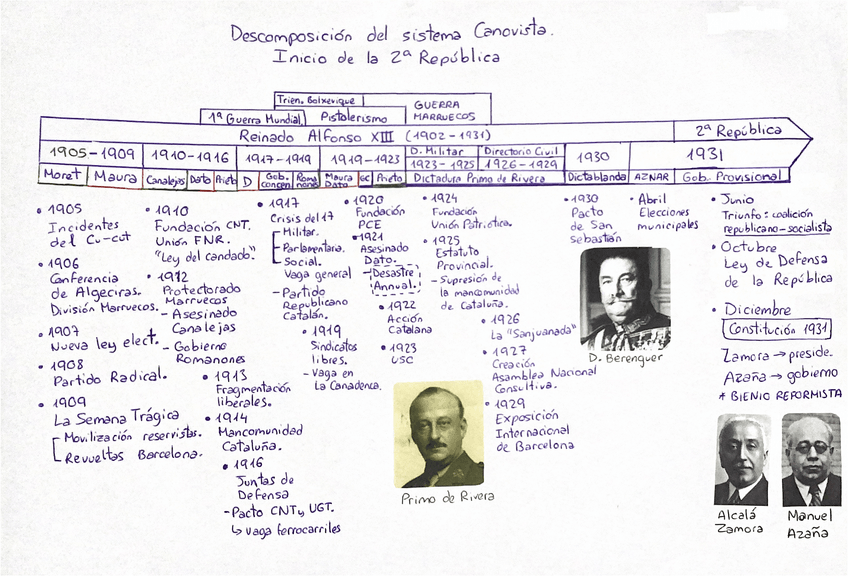 Descomposición del sistema Canovista.
Inicio de la 2ª República
Trien. Bolxevique
GUERRA
MARRUECOS
1ª Guerra Mundial
Pistolerismo
Reinado Alfonso XIII (1902-1931)
2ª República
1905-1909
1910-1916
1917-1919
1919-1923
D. Militar
1923-1925
Directorio Civil
1926-1929
1930
1931
Moret
Maura
Canalejas
Dato
Prieto
D
Gob.
concen.
Roma
nones
Maura
Dato
GC
Prieto
Dictadura Primo de Rivera
Dictablanda
AZNAR
Gob. Provisional
• 1905
Incidentes
del Cu-cut
• 1906
Conferencia
de Algeciras.
División Marruecos.
• 1907
Nueva ley elect.
• 1908
Partido Radical.
• 1909
La Semana Trágica
Movilización reservistas.
Revueltas Barcelona.
• 1910
Fundación CNT.
Unión FNR.
"Ley del candado."
• 1912
Protectorado
Marruecos
- Asesinado
Canalejas
- Gobierno
Romanones
• 1913
Fragmentación
liberales.
• 1914
Mancomunidad
Cataluña.
• 1916
Juntas de
Defensa
- Pacto CNT y UGT.
↳ vaga ferrocarriles
• 1917
Crisis del 17
Militar.
Parlamentaria.
Social.
Vaga general
- Partido
Republicano
Catalán.
• 1919
Sindicatos
libres.
- Vaga en
La Canadenca.
• 1920
Fundación
PCE
• 1921
Asesinado
Dato.
- Desastre
Annual.
• 1922
Acción
Catalana
• 1923
USC
Primo de Rivera
• 1924
Fundación
Unión Patriotica.
• 1925
Estatuto
Provincial.
- Supresión de
la mancomunidad
de Cataluña.
• 1926
La "Sanjuanada"
• 1927
Creación
Asamblea Nacional
Consultiva.
• 1929
Exposición
Internacional
de Barcelona
• 1930
Pacto
de San
Sebastián
D. Berenguer
• Abril
Elecciones
municipales
• Junio
Triunfo: coalición
republicano-socialista
• Octubre
Ley de Defensa
de la República
• Diciembre
Constitución 1931
Zamora → preside.
Azaña → gobierno
* BIENIO REFORMISTA
Alcalá
Zamora
Manuel
Azaña